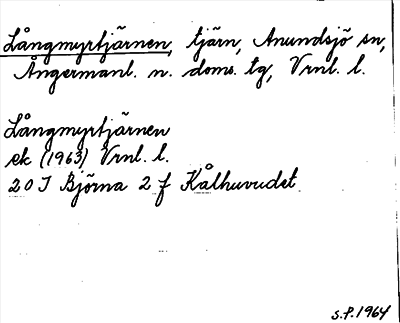 Långmyrtjärnen, tjärn, Anundsjö sn,
Ångermanl. n. doms. tg, Vrnl. l.
Långmyrtjärnen
ek (1963) Vrnl. l.
20 I Björna 2 f Kålhuvudet
S.P. 1964